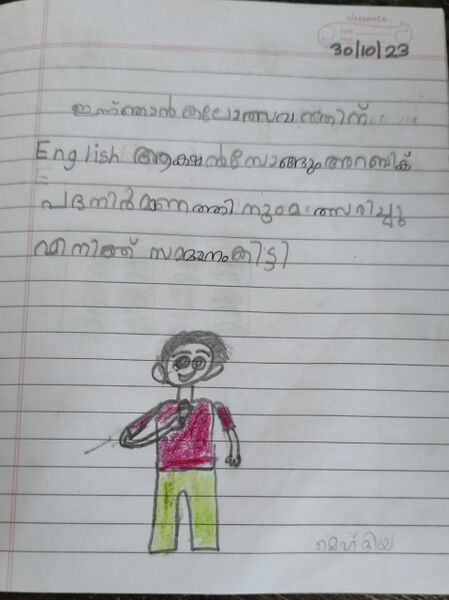 classmate
Date
Page
30/10/23
ഇന്ന്ഞാൻ കലോത്സവത്തിന്
English ആക്ഷൻസോങ്ങുംഅറബിക്
പദനിർമാണത്തിനുംമത്സരിച്ചു
എനിക്ക് സമ്മാനംകിട്ടി
മെഹ്ദിയ